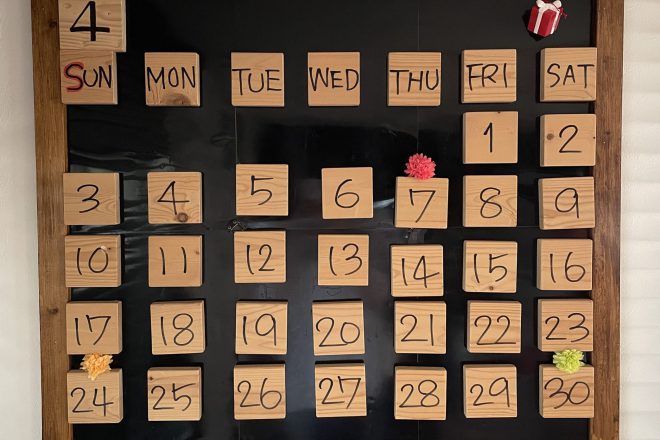 4
SUN MON TUE WED THU FRI SAT
1 2
3 4 5 6 7 8 9
10 11 12 13 14 15 16
17 18 19 20 21 22 23
24 25 26 27 28 29 30